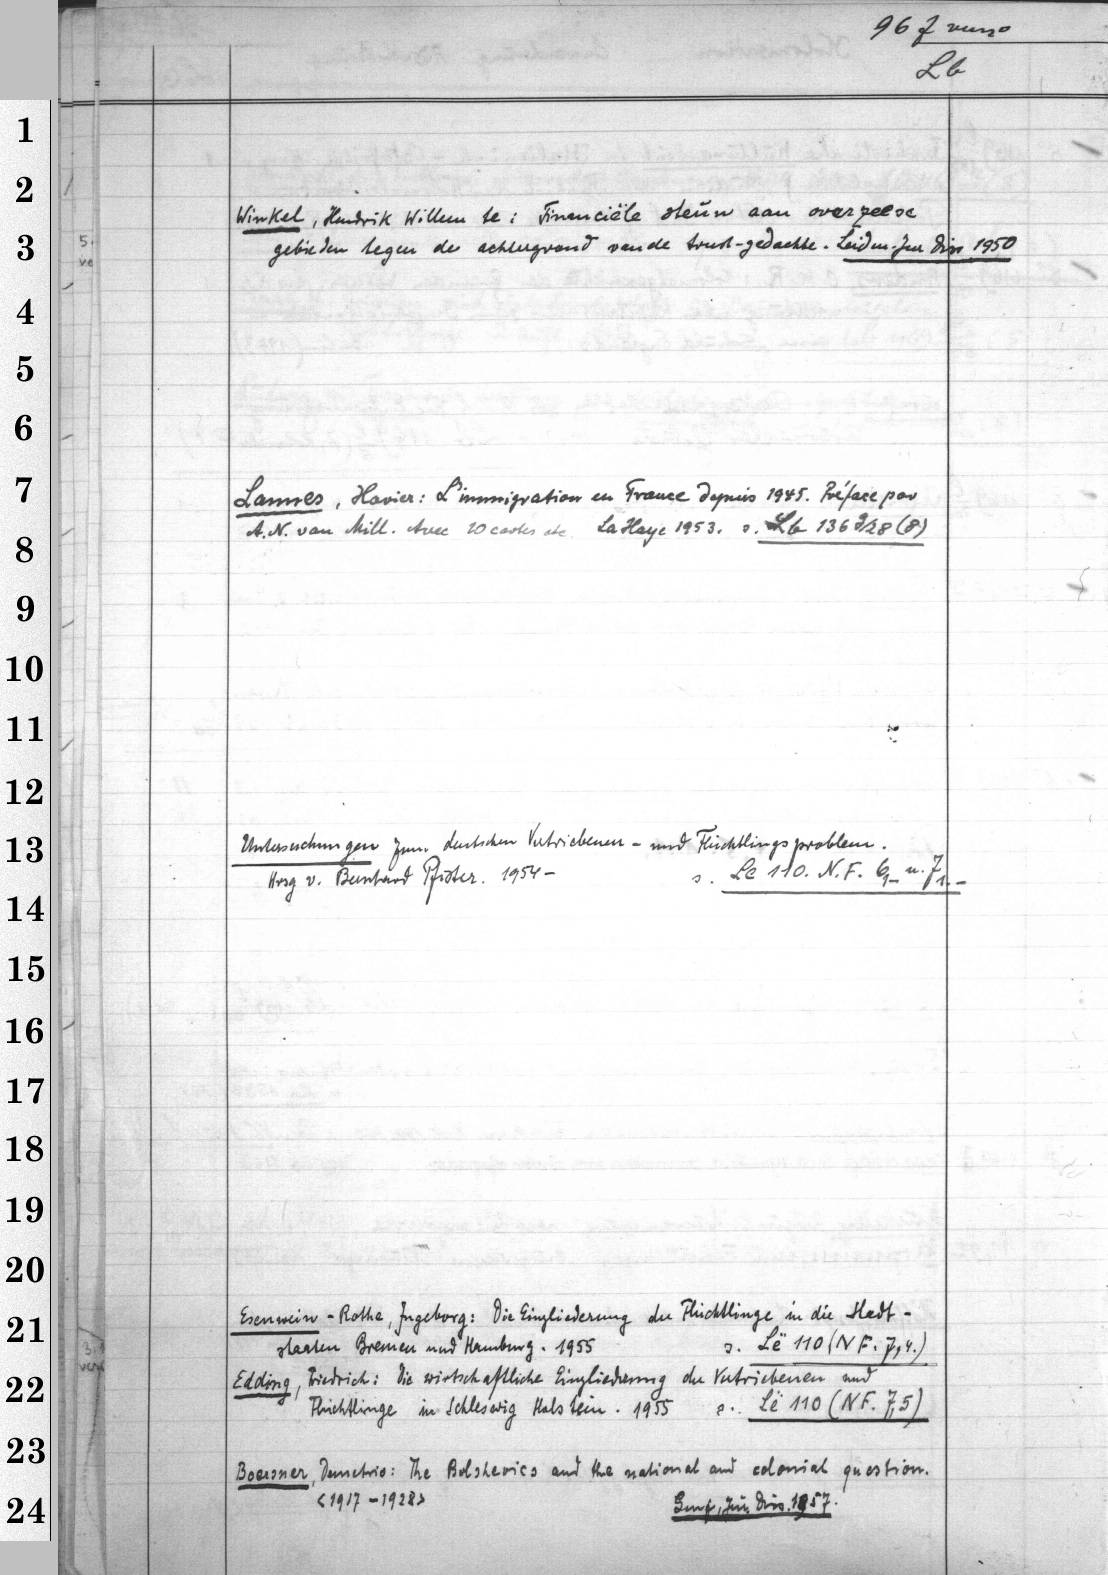 96 f verso
Lb
1
2
Winkel, Hendrik Willem te: Financiële steun aan overzeese
3
gebieden tegen de achtergrond van de trust-gedachte. Leiden. Jur Diss 1950
4
5
6
7
Lannes, Xavier: L'immigration en France depuis 1945. Préface par
A.N. van Mill. Avec 20 cartes etc. La Haye 1953. s. Lb 136 g/28 (8)
8
9
10
11
12
13
Untersuchungen zum deutschen Vertriebenen- und Flüchtlingsproblem.
Hrsg v. Bernhard Pfister. 1954- s. Le 110. N.F. 6,1- u. 7,1.-
14
15
16
17
18
19
20
Esenwein-Rothe, Ingeborg: Die Eingliederung der Flüchtlinge in die Stadt-
21
staaten Bremen und Hamburg. 1955 s. Lë 110 (NF. 7,4.)
Edding, Friedrich: Die wirtschaftliche Eingliederung der Vertriebenen und
22
Flüchtlinge in Schleswig Holstein. 1955 s. Lë 110 (NF. 7,5)
23
Boersner, Demetrio: The Bolshevics and the national and colonial question.
24
<1917-1928> Genf, Jur. Diss. 1957.